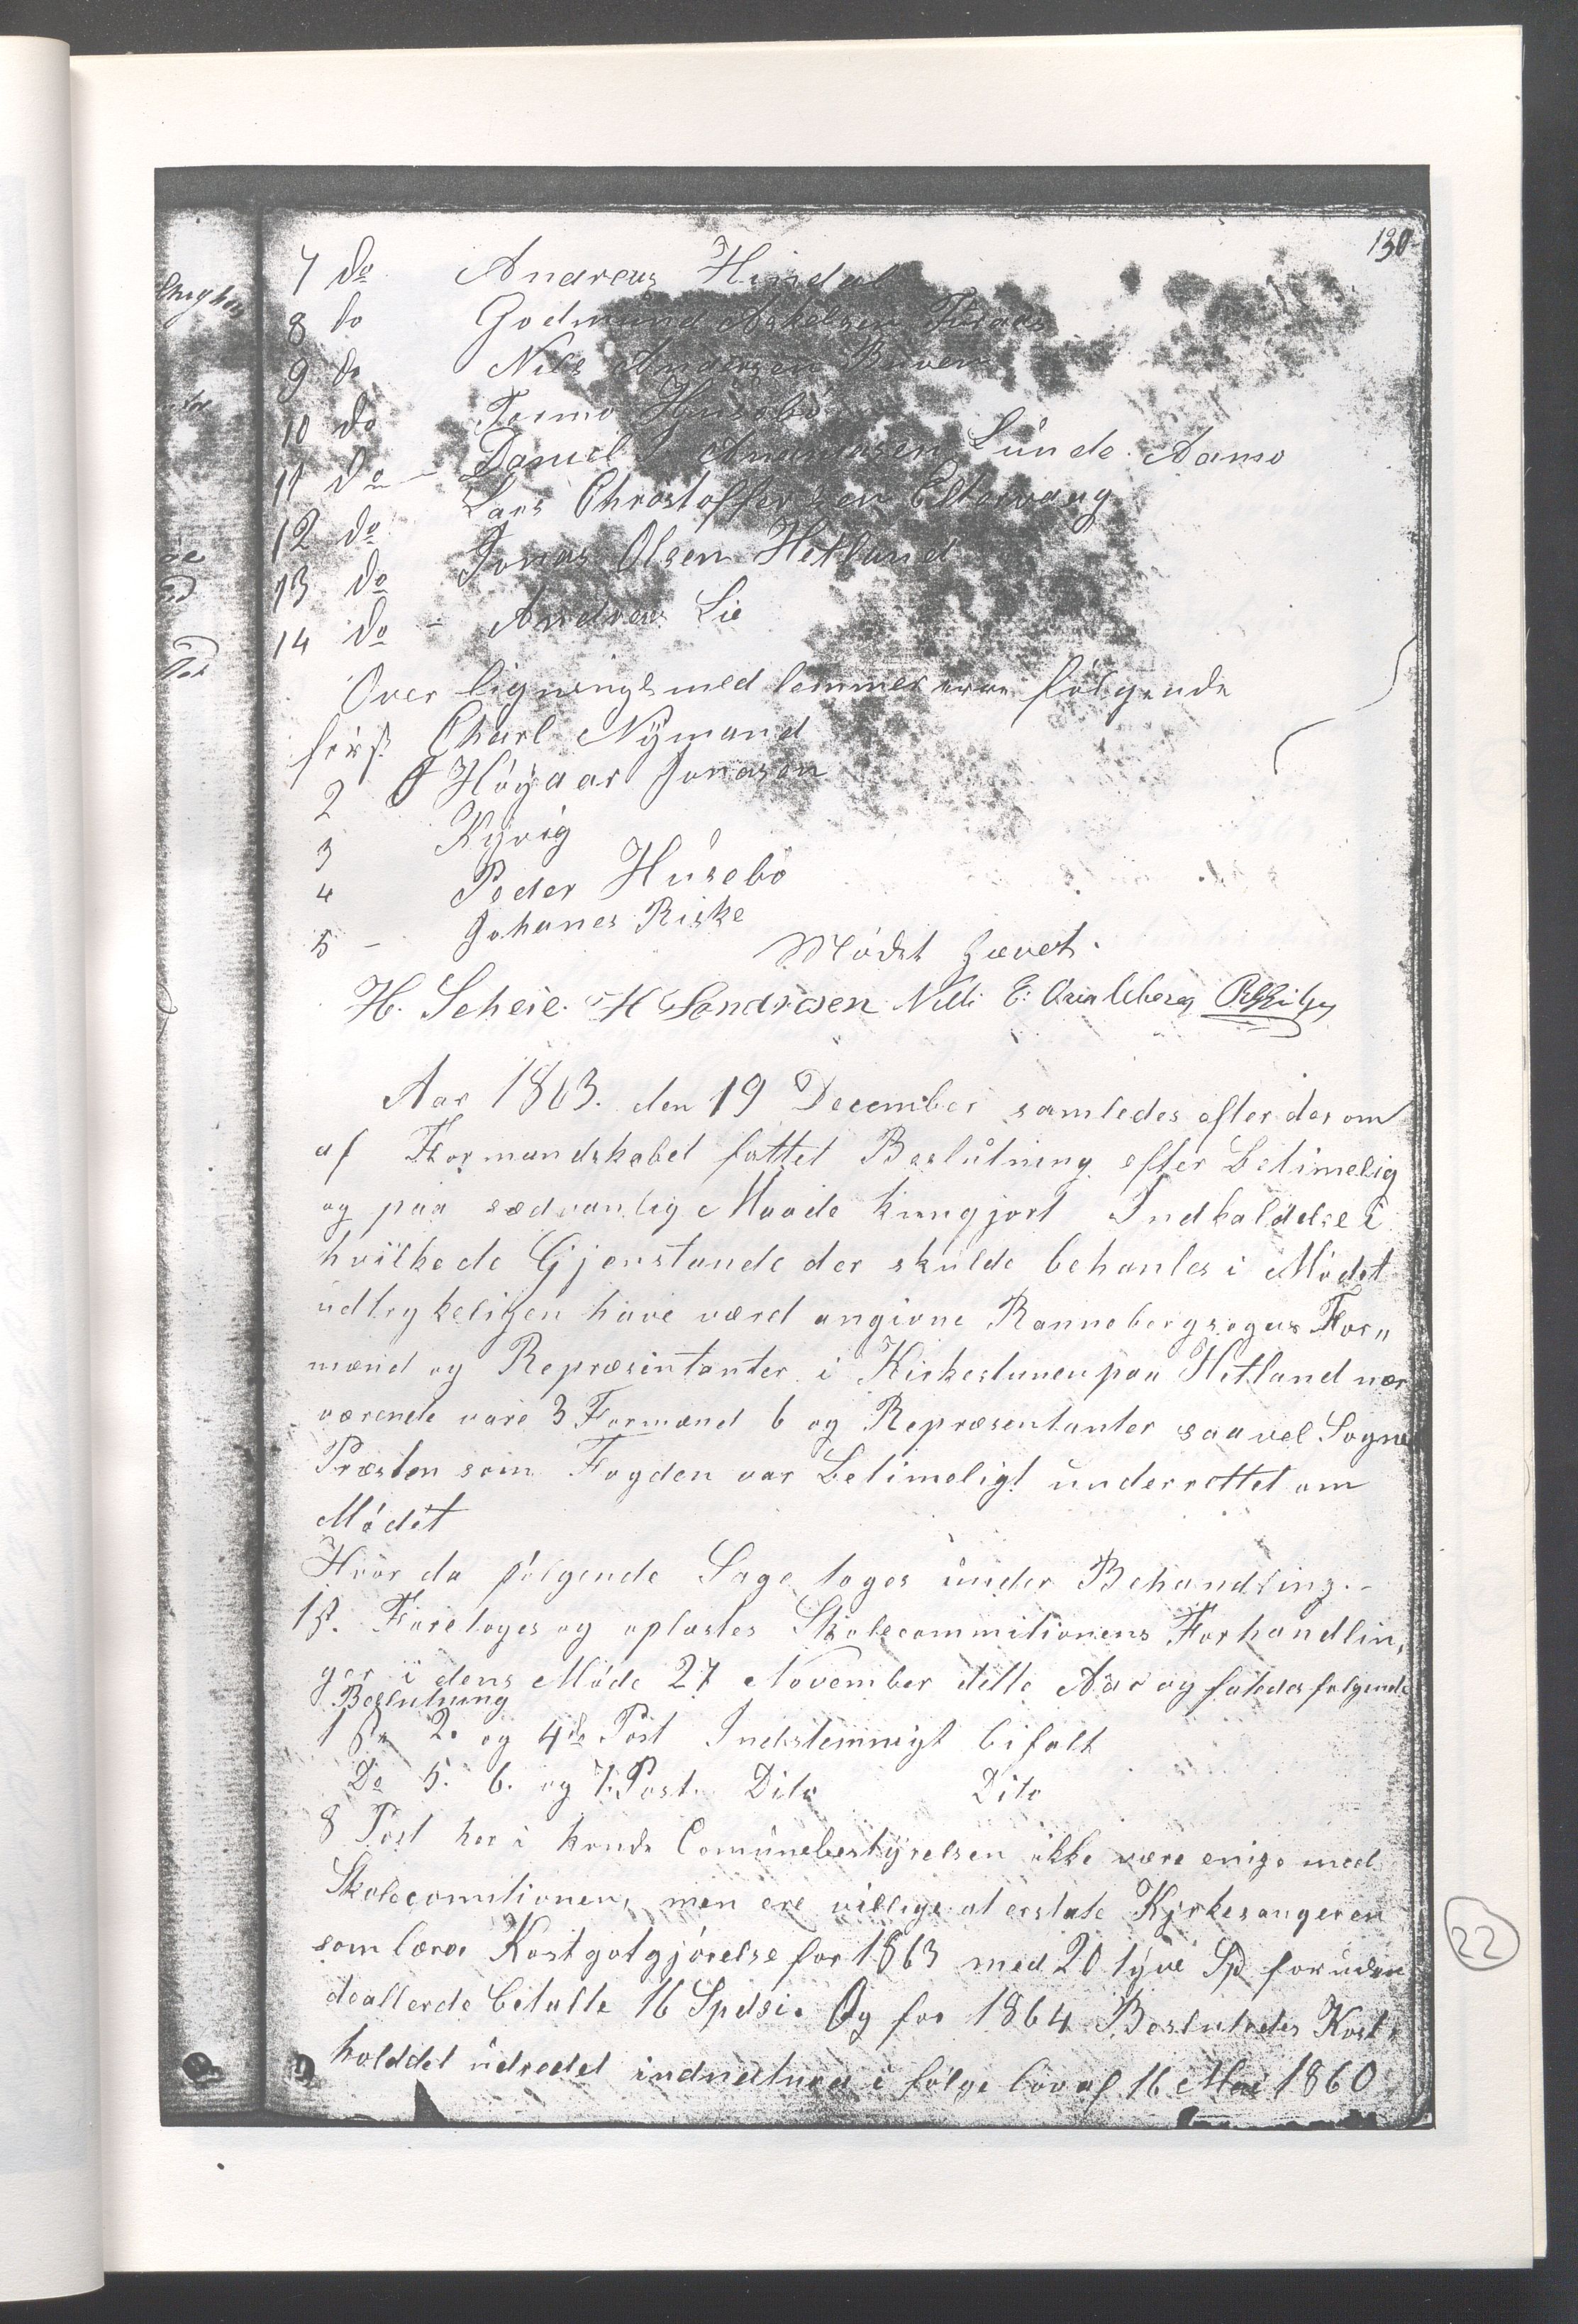 130
7 do Andreas Hindal
8 do Godmund Askelsen Furaas
9 do Nils Andersen
10 do Tormo Husebö
11 do - Daniel Lunde. Aamo
12 do Lars Christoffersen Eltervaag
13 do Jonas Olsen Hetland
14 do - Andreas Lie
Over ligningsmedlemmer ere følgende
først Charl Nÿmand
2 Höÿaar Jonasen
3 Kÿvig
4 Peder Husebö
5 - Johanes Riske
Mödet hævet.
H. Scheie. H Sandresen Nills E.
Aar 1863. den 19 December samledes efter derom
af Formandskabet fattet Beslutning efter Betimelig
og paa sædvanlig Maade kungjort Indkaldelse i
hvilke de Gjenstande der skulde behanles i Mödet
udtrykeligen have værd angivne Rannebergsogns For„
mænd og Repræsintanter i Kirkestuuen paa Hetland nær
værende vare 3 Formænd 6 og Repræsentanter saavel Sogne
Præsten som Fogden var Betimeligt underrettet om
Mödet
Hvor da fölgende Sage toges under Behandling. -
1st. Foretoges og oplæstes Skolecommitionens Forhandlin„
ger i dens Möde 27 November dette Aar og fatedes følgende
Beslutning
1ste 2. og 4de Post Indstemmigt bifalt
Do 5. 6. og 7. Post. Dito Dito
8 Post her i kunde Comunebestÿrelsen ikke være enige med
Skolecomitionen, men ere villige at erstate Kjrkesangeren
som lærer Kostgotgjörelse for 1863 med 20 tÿve Sp foruden
de allerde betalte 16 Spdsi. Og for 1864 Besluttedes Kost„
holdet udredet indnatura i fölge lov af 16 Mai 1860
22